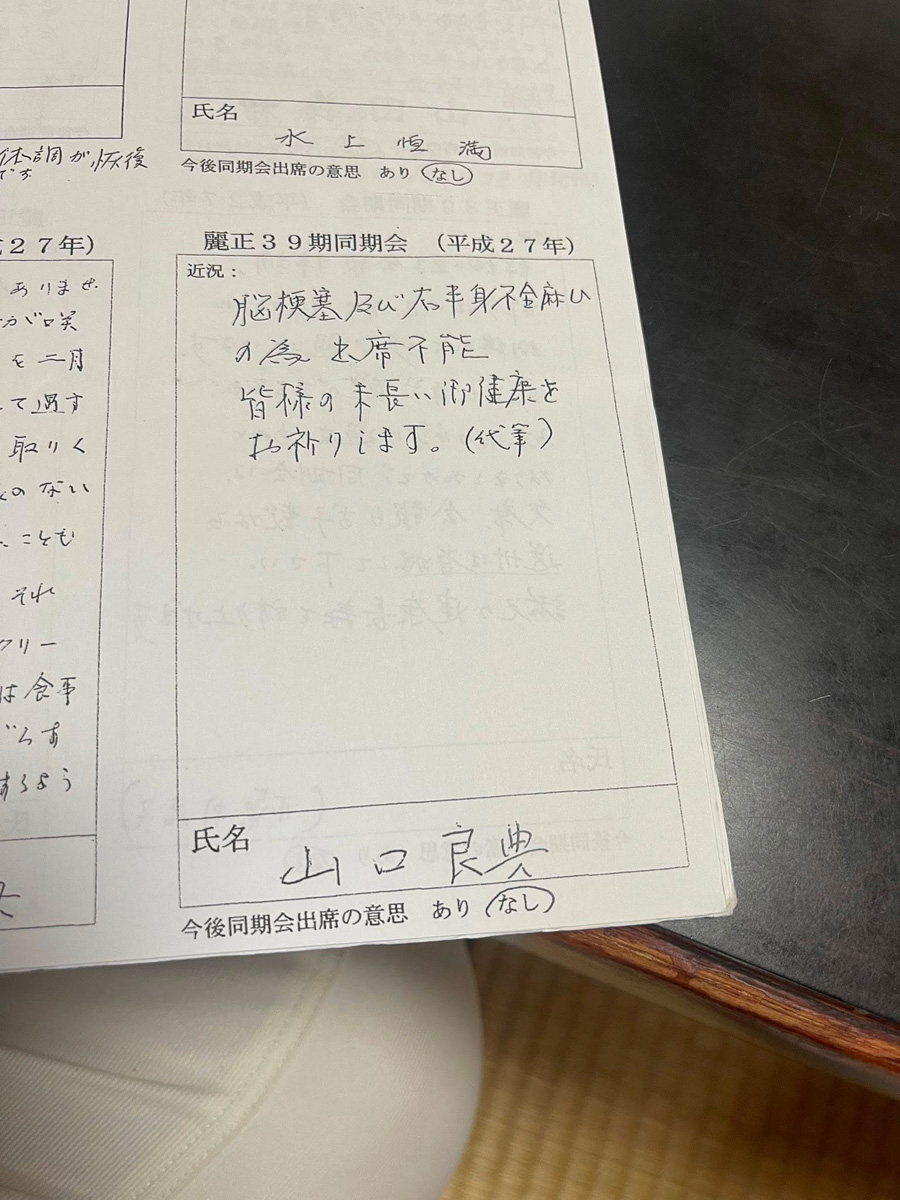 氏名
水上恒満
今後同期会出席の意思 あり なし
体調が恢復
です
麗正39期同期会 (平成27年)
近況:
脳梗塞及び右半身不全麻ひ
の為出席不能
皆様の末長い御健康を
お祈りします。(代筆)
氏名
山口良典
今後同期会出席の意思 あり なし
27年)
ありませ
が咲
を二月
て過す
取りく
のない
ことも
それ
クリー
は食事
するよう